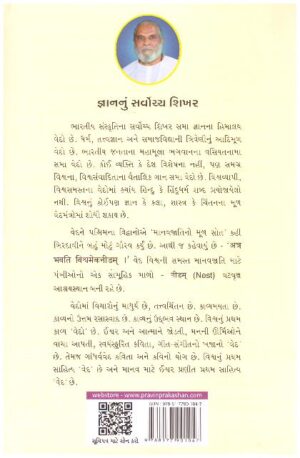 જ્ઞાનનું સર્વોચ્ચ શિખર
ભારતીય સંસ્કૃતિના સર્વોચ્ચ શિખર સમા જ્ઞાનના હિમાલય
વેદો છે. ધર્મ, તત્ત્વજ્ઞાન અને સમાજવિદ્યાની ત્રિવેણીનું આદિમૂળ
વેદો છે. ભારતીય જનતાના મહામૂલા ભગવાનના વસિયતનામા
સમા વેદો છે. કોઈ વ્યક્તિ કે દેશ વિશેષના નહીં, પણ સમગ્ર
વિશ્વના, વિશ્વસંવાદિતાના વૈતાલિક ગાન સમા વેદો છે. વિશ્વવ્યાપી,
વિશ્વસમસ્તના વેદોમાં ક્યાંય હિન્દુ કે હિંદુધર્મ શબ્દ પ્રયોજાયેલો
નથી. વિશ્વનું કોઈપણ જ્ઞાન કે કલા, શાસ્ત્ર કે ચિંતનના મૂળ
વેદમંત્રોમાં શોધી શકાય છે.
વેદને પશ્ચિમના વિદ્વાનોએ 'માનવજાતિનો મૂળ સ્રોત' કહી
બિરદાવીને બહું મોટું ગૌરવ કર્યું છે. આથી જ કહેવાયું છે - 'अत्र
भवति विश्वमेकनीडम् ।' વેદ વિશ્વની સમસ્ત માનવજાતિ માટે
પંખીઓનો એક સામૂહિક માળો - नीडम् (Nest) વટવૃક્ષ
આશ્રયસ્થાન બની રહે છે.
વેદોમાં વિચારોનું માધુર્ય છે, તત્ત્વચિંતન છે. કાવ્યમયતા છે.
કાવ્યનો ઉત્તમ રસાસ્વાદ છે. કાવ્યનું ઉદ્ભવ સ્થાન છે. વિશ્વનું પ્રથમ
કાવ્ય 'વેદો' છે. ઈશ્વર અને આત્માને જોડતી, મનની ઊર્મિઓને
વાચા આપતી, સ્વયંસ્ફુરિત કવિતા, ગીત-સંગીતનો ખજાનો 'વેદ'
છે. તેમજ ગાંધર્વવેદ કવિતા અને કવિનો યોગ છે. વિશ્વનું પ્રથમ
સાહિત્ય 'વેદ' છે અને માનવ માટે ઈશ્વર પ્રણીત પ્રથમ સાહિત્ય
'વેદ' છે.
webstore - www.pravinprakashan.com
સૂચિપત્ર માટે સ્કેન કરો